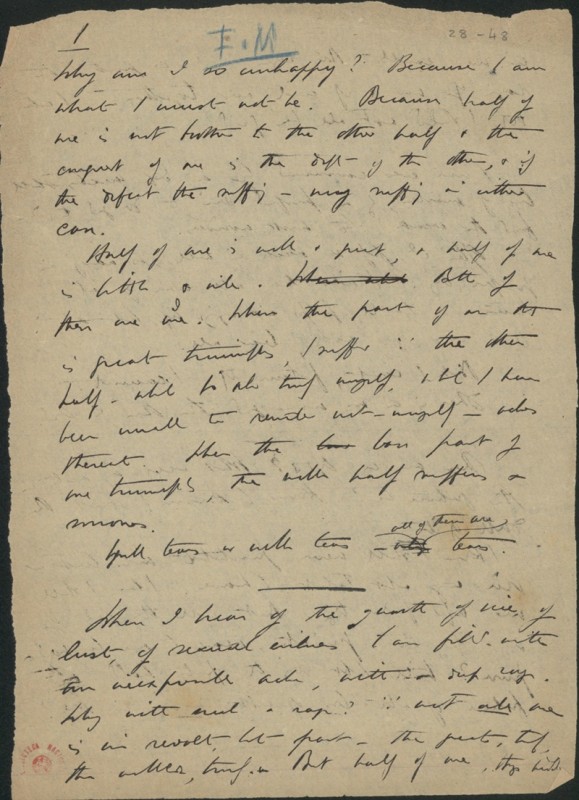 1
F. M
28-43
Why am I so unhappy? Because I am
what I must not be. Because half of
me is not brother to the other half & the
conquest of one is the defeat of the other, & if
the defeat the suffering — my suffering in either
case.
Half of me is noble & great, & half of me
is little & vile. Both of
them are me. When the part of me that
is great triumphs, I suffer the other
half - which is also truly myself, which I have
been unable to
thereat. When the base part of
me triumphs, the noble half suffers &
mourns.
tears or noble tears — all of them are tears.
When I hear of the growth of vice, of
lust, of sexual I am filled with
an inexpressible ache, with a deep rage.
Why with such a rage? not only one
is in revolt, but part — the great, the
the noble, But half of me,